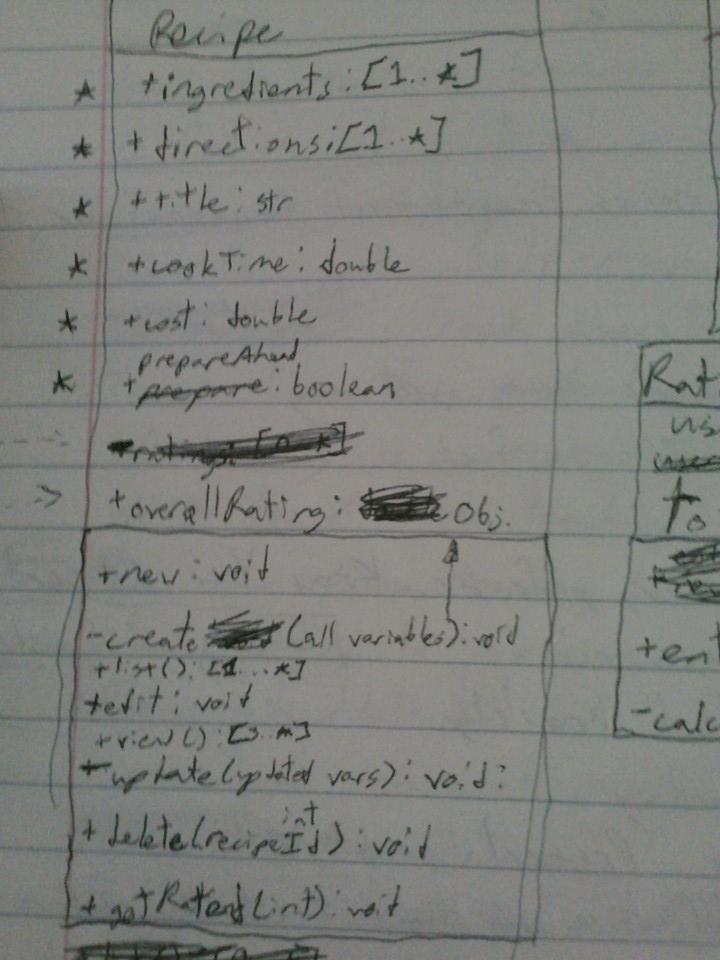 Recipe
* +ingredients: [1..*]
* +directions: [1..*]
* +title: str
* +cookTime: double
* +cost: double
prepareAhead
* +prepare: boolean
+ratings: [0..*]
=> +overallRating: Obj.
+new: void
-create (all variables): void
+list(): [1...*]
+edit: void
+view(): [1..*]
update(updated vars): void:
int
+ delete(recipeId): void
+ (int): void
Rat
us
user
to
+ent
-calc